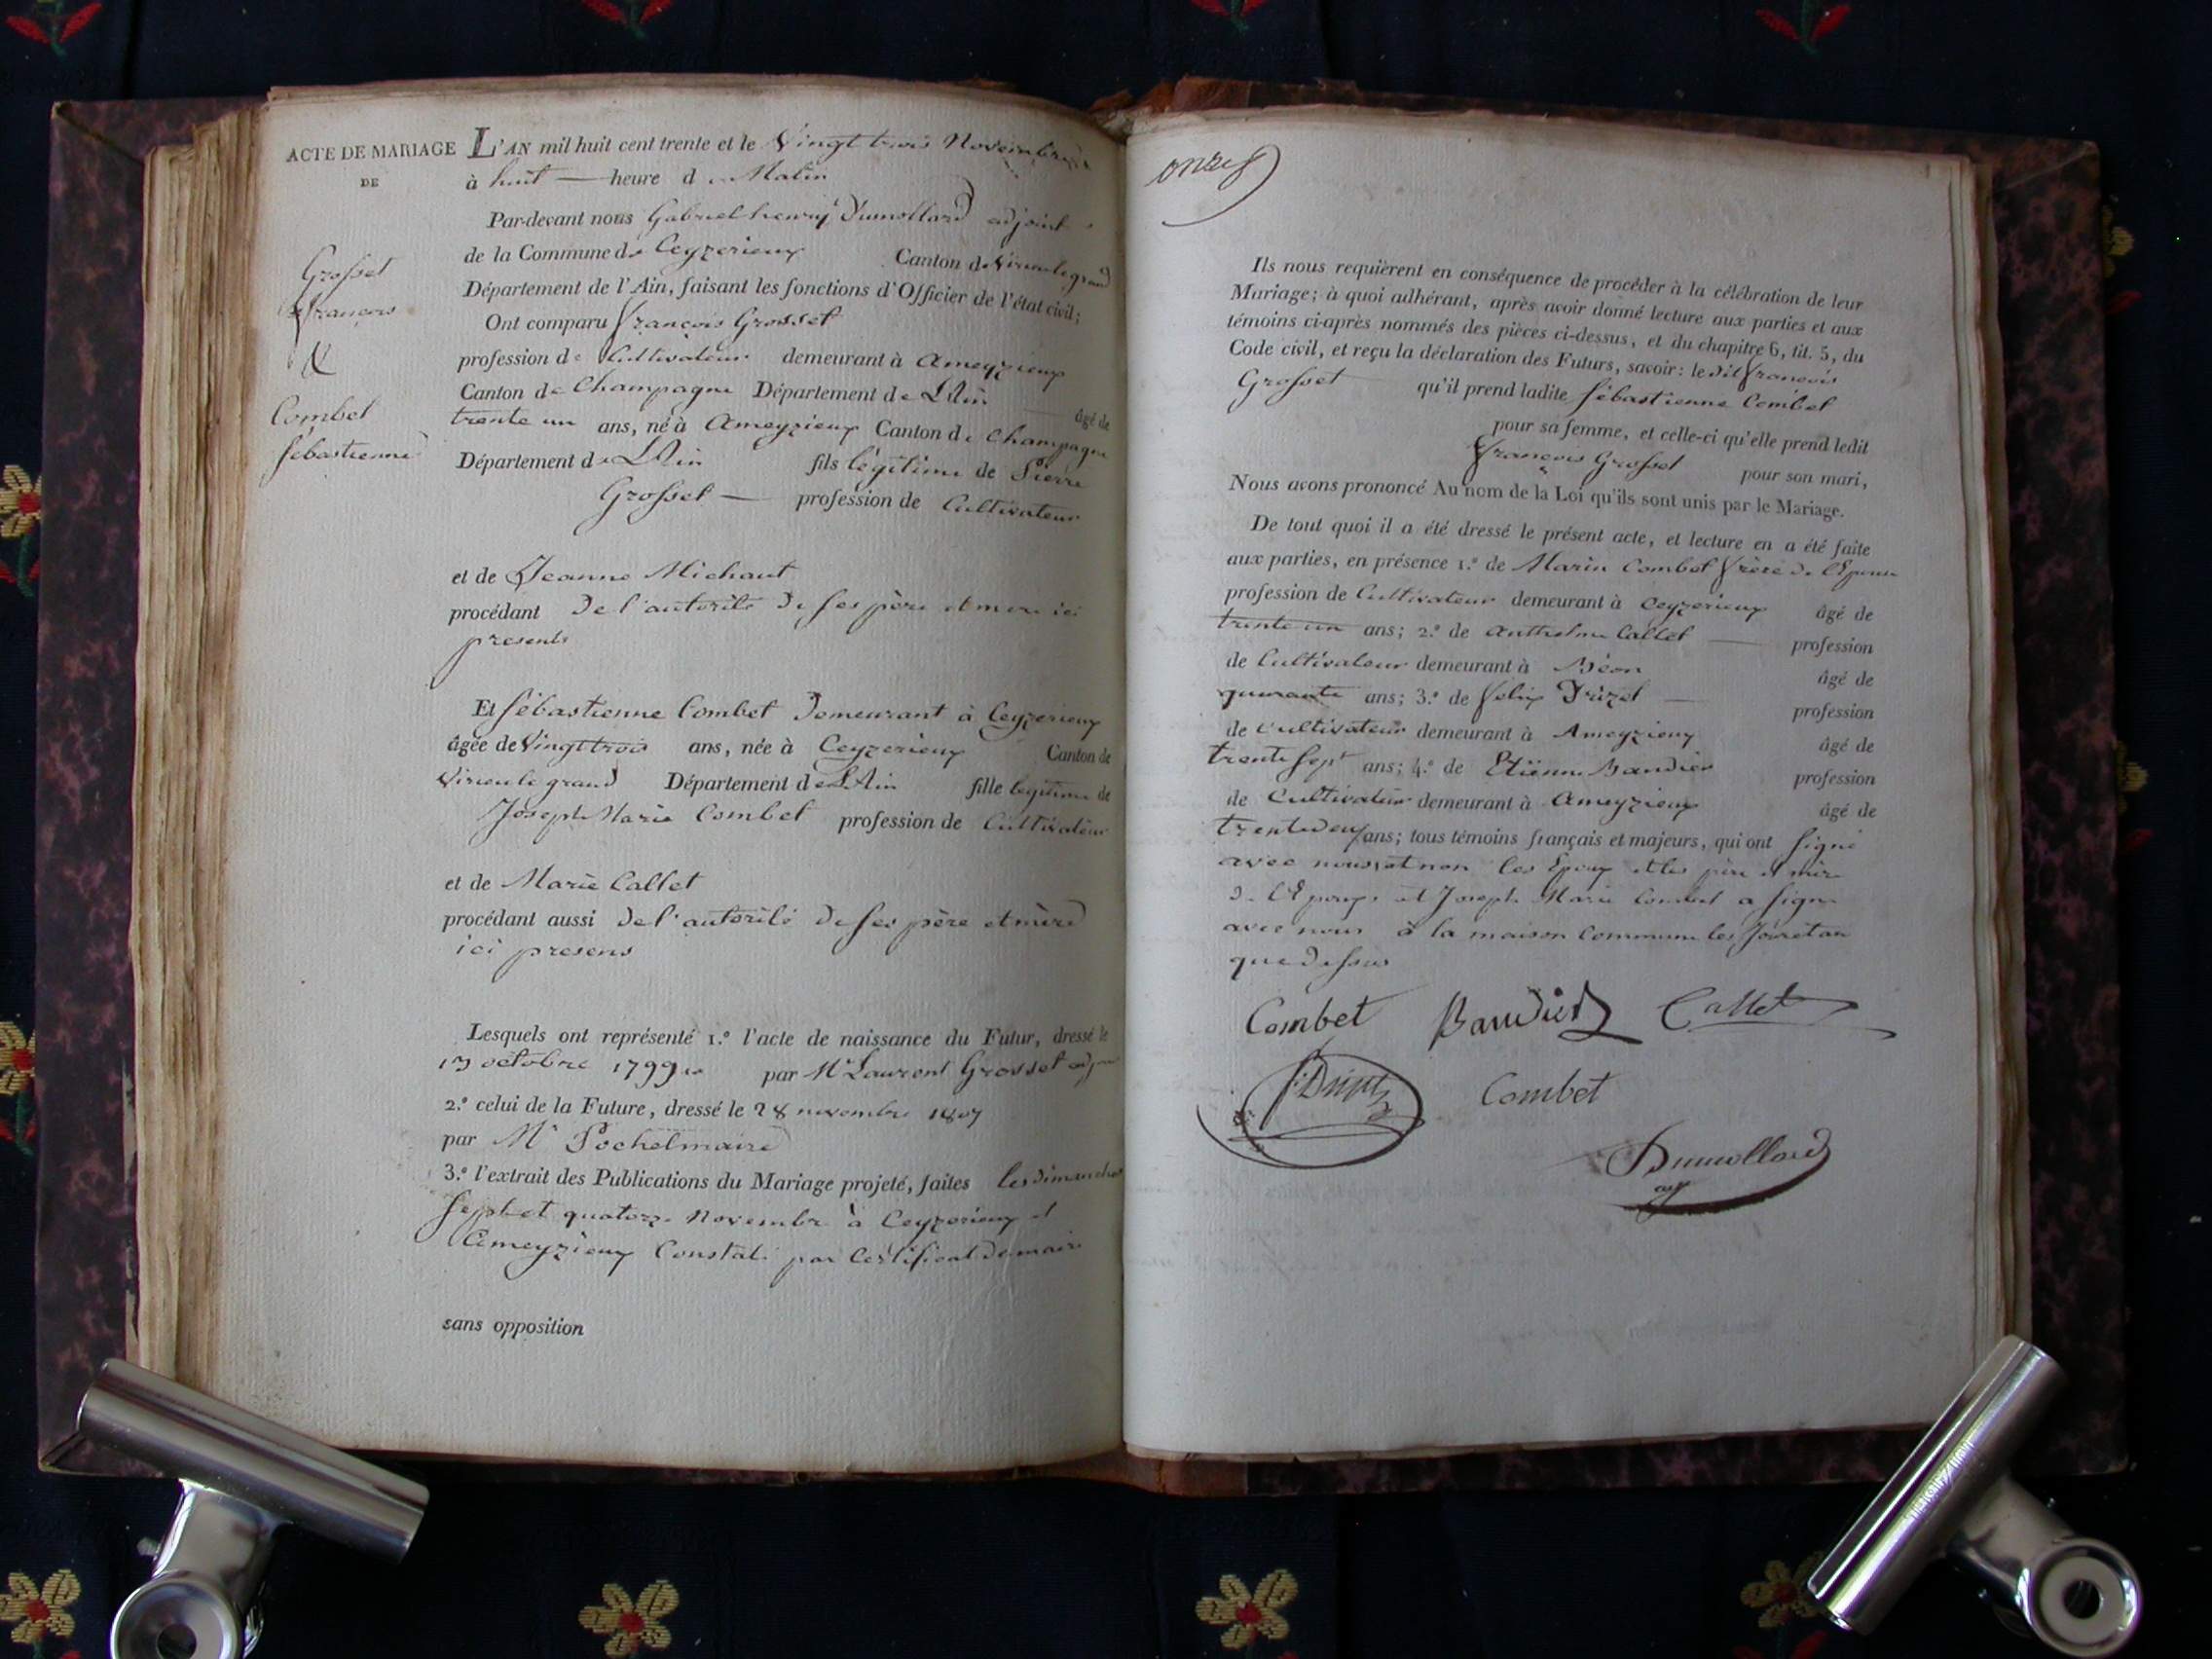 ACTE DE MARIAGE
DE
Grosset
François
&
Combet
sébastienne
L'AN mil huit cent trente et le Vingt trois Novembre
à huit heure d Matin
Par-devant nous Gabriel henry Dumollard adjoint
de la Commune de Ceyzerieux Canton de Virieu le grand
Département de l'Ain, faisant les fonctions d'Officier de l'état civil;
Ont comparu françois Grosset
profession de Cultivateur demeurant à Ameyzieux
Canton de Champagne Département de L'Ain âgé de
trente un ans, né à Ameyzieux Canton de Champagne
Département de L'Ain fils légitime de Pierre
Grosset profession de Cultivateur
et de Jeanne Michaut
procédant de l'autorité de ses père et mere ici
presents
Et sébastienne Combet demeurant à Ceyzerieux
âgée de Vingt trois ans, née à Ceyzerieux Canton de
Virieu le grand Département de L'Ain fille légitime de
Joseph Marie Combet profession de Cultivateur
et de Marie Callet
procédant aussi de l'autorité de ses père et mère
ici presens
Lesquels ont représenté 1.º l'acte de naissance du Futur, dressé le
13 octobre 1799 par Mr Laurent Grosset
2.º celui de la Future, dressé le 28 novembre 1807
par Mr Pochet maire
3.º l'extrait des Publications du Mariage projeté, faites les dimanches
sept et quatorze Novembre à Ceyzerieux et
Ameyzieux Constaté par Certificat de maire
sans opposition
onze
Ils nous requièrent en conséquence de procéder à la célébration de leur
Mariage; à quoi adhérant, après avoir donné lecture aux parties et aux
témoins ci-après nommés des pièces ci-dessus, et du chapitre 6, tit. 5, du
Code civil, et reçu la déclaration des Futurs, savoir: ledit françois
Grosset qu'il prend ladite sébastienne Combet
pour sa femme, et celle-ci qu'elle prend ledit
françois Grosset pour son mari,
Nous avons prononcé Au nom de la Loi qu'ils sont unis par le Mariage.
De tout quoi il a été dressé le présent acte, et lecture en a été faite
aux parties, en présence 1.º de Marin Combet frère de l'Epouse
profession de Cultivateur demeurant à Ceyzerieux âgé de
trente un ans; 2.º de anthelme Callet profession
de Cultivateur demeurant à Béon âgé de
quarante ans; 3.º de felix Drizet profession
de Cultivateur demeurant à Ameyzieux âgé de
trente sept ans; 4.º de Etienne Baudier profession
de Cultivateur demeurant à Ameyzieux âgé de
trente deux ans; tous témoins français et majeurs, qui ont signé
avec nous et non les Epoux et les père et mère
de l'Epoux et Joseph Marie Combet a signé
avec nous à la maison Commune les Jour et an
que dessus
Combet Baudier Callet
Combet
Dumollard